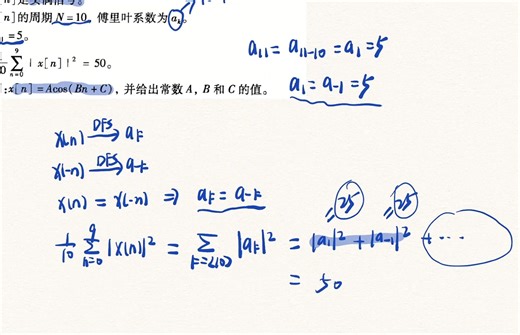 n]是实偶信号。
n]的周期N=10，傅里叶系数为a_k
=5。
0 \sum_{n=0}^{9} |x[n]|^2 = 50。
:x[n]=Acos(Bn+C)，并给出常数A，B和C的值。
a_{11} = a_{11-10} = a_1 = 5
a_1 = a_{-1} = 5
x[n] \xrightarrow{DFS} a_k
x[-n] \xrightarrow{DFS} a_{-k}
x[n] = x[-n] ⇒ a_k = a_{-k}
25 25
\frac{1}{10} \sum_{n=0}^{9} |x[n]|^2 = \sum_{k=<10>} |a_k|^2 = |a_1|^2 + |a_{-1}|^2 + ...
= 50